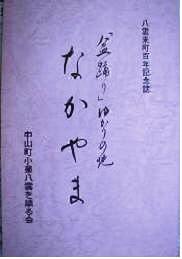 八雲来町百年記念誌
「盆踊り」ゆかりの地
なかやま
中山町小泉八雲を語る会